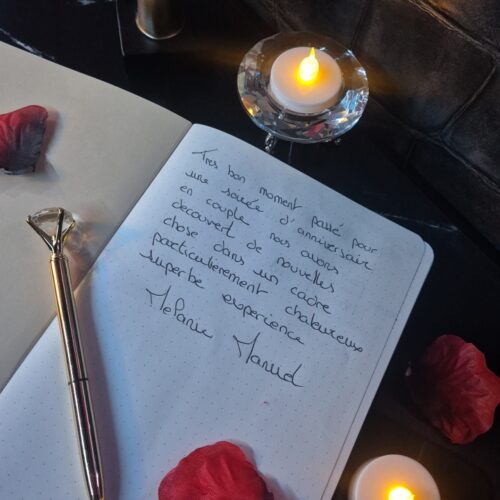 Tres bon moment passé pour
une soirée d'anniversair
en couple nous avons
decouvert de nouvelles
chose dans un cadre
particulièrement chaleureuse
superbe experience
Melanie Manuel